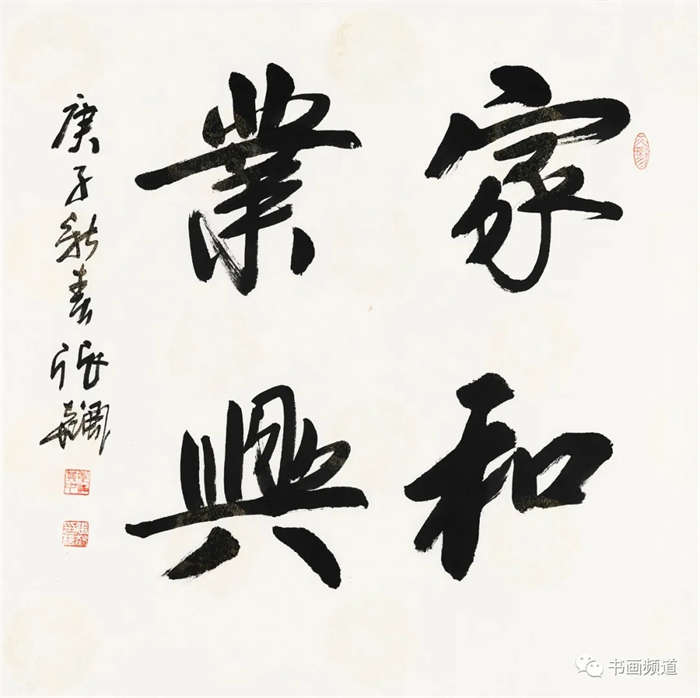 家和
業興
庚子秋書張
书画频道